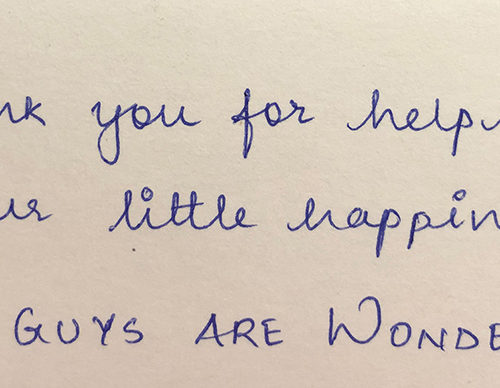 nk you for help
ur little happin
GUYS ARE WONDE